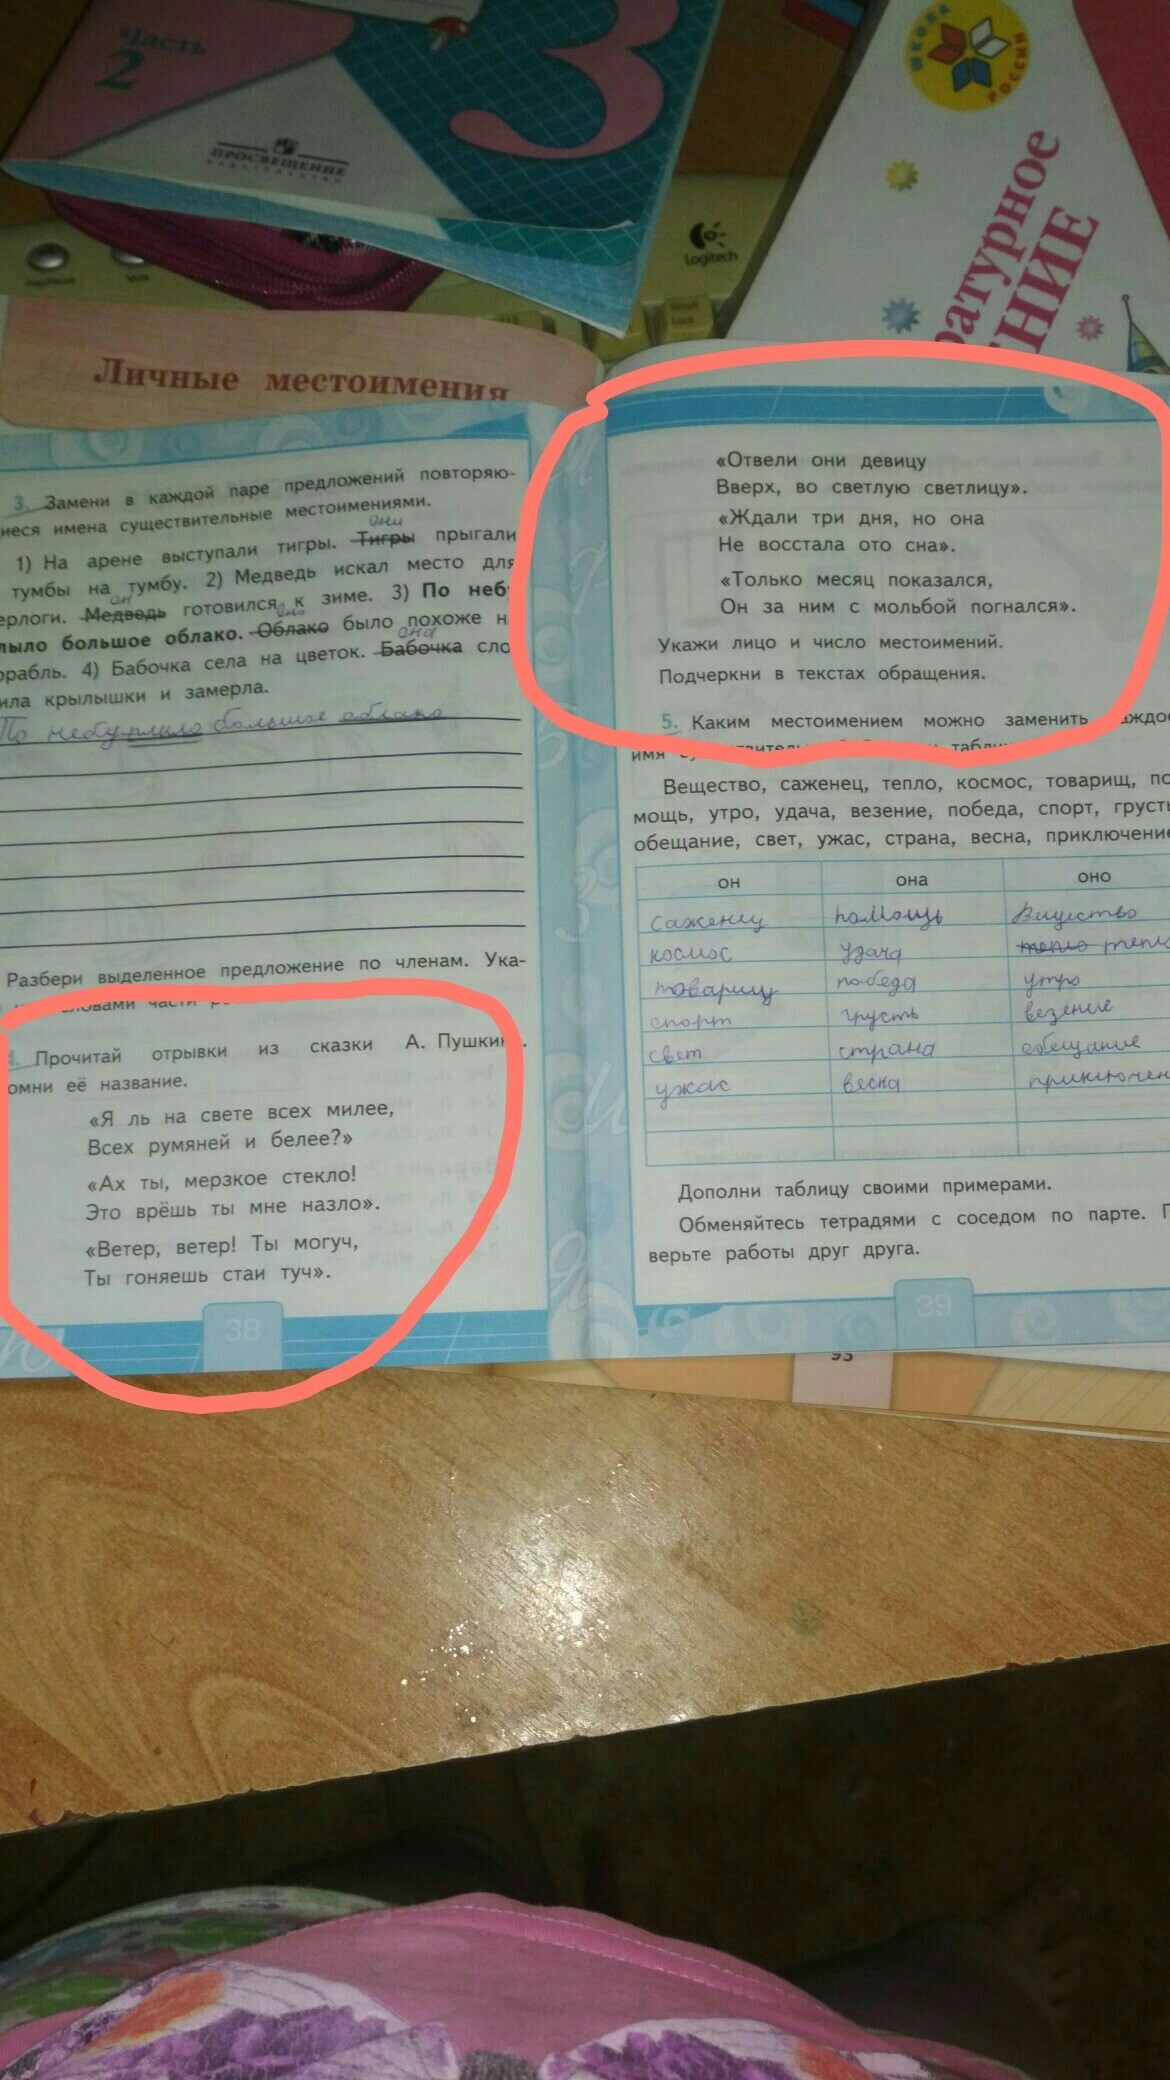 Часть
2
3
ПРОСВЕЩЕНИЕ
ИЗДАТЕЛЬСТВО
ШКОЛА
РОССИИ
Logitech
Scroll
Lock
Личные местоимения
3. Замени в каждой паре предложений повторяю-
иеся имена существительные местоимениями.
они
1) На арене выступали тигры. Тигры прыгали
тумбы на тумбу. 2) Медведь искал место для
он
ерлоги. Медведь готовился к зиме. 3) По неб
оно
лыло большое облако. Облако было похоже н
она
орабль. 4) Бабочка села на цветок. Бабочка сло
ила крылышки и замерла.
По небу плыло большое облако
Разбери выделенное предложение по членам. Ука-
словами части
4. Прочитай отрывки из сказки А. Пушкин
омни её название.
«Я ль на свете всех милее,
Всех румяней и белее?»
«Ах ты, мерзкое стекло!
Это врёшь ты мне назло».
«Ветер, ветер! Ты могуч,
Ты гоняешь стаи туч».
38
«Отвели они девицу
Вверх, во светлую светлицу».
«Ждали три дня, но она
Не восстала ото сна».
«Только месяц показался,
Он за ним с мольбой погнался».
Укажи лицо и число местоимений.
Подчеркни в текстах обращения.
5. Каким местоимением можно заменить аждо
имя
Вещество, саженец, тепло, космос, товарищ, по
мощь, утро, удача, везение, победа, спорт, грусть
обещание, свет, ужас, страна, весна, приключение
он она оно
саженец помощь Вещество
космос удача тепло тепл
товарищ победа утро
спорт грусть везение
свет страна обещание
ужас весна приключен
Дополни таблицу своими примерами.
Обменяйтесь тетрадями с соседом по парте. П
верьте работы друг друга.
39
93